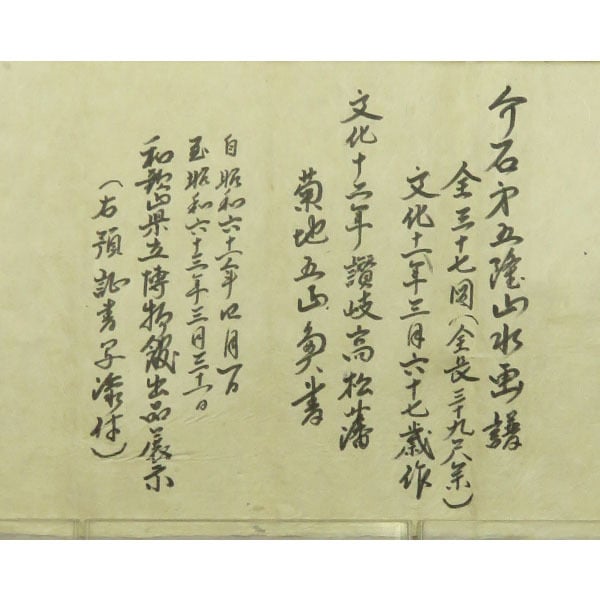 介石第五隆山水画譜
全三十七図（全長三十九尺余）
文化十一年三月六十七歳作
文化十二年讃岐高松藩
菊地五山奥書
自昭和六十二年四月一日
至昭和六十三年三月三十一日
和歌山県立博物館出品展示
（右預証書写添付）